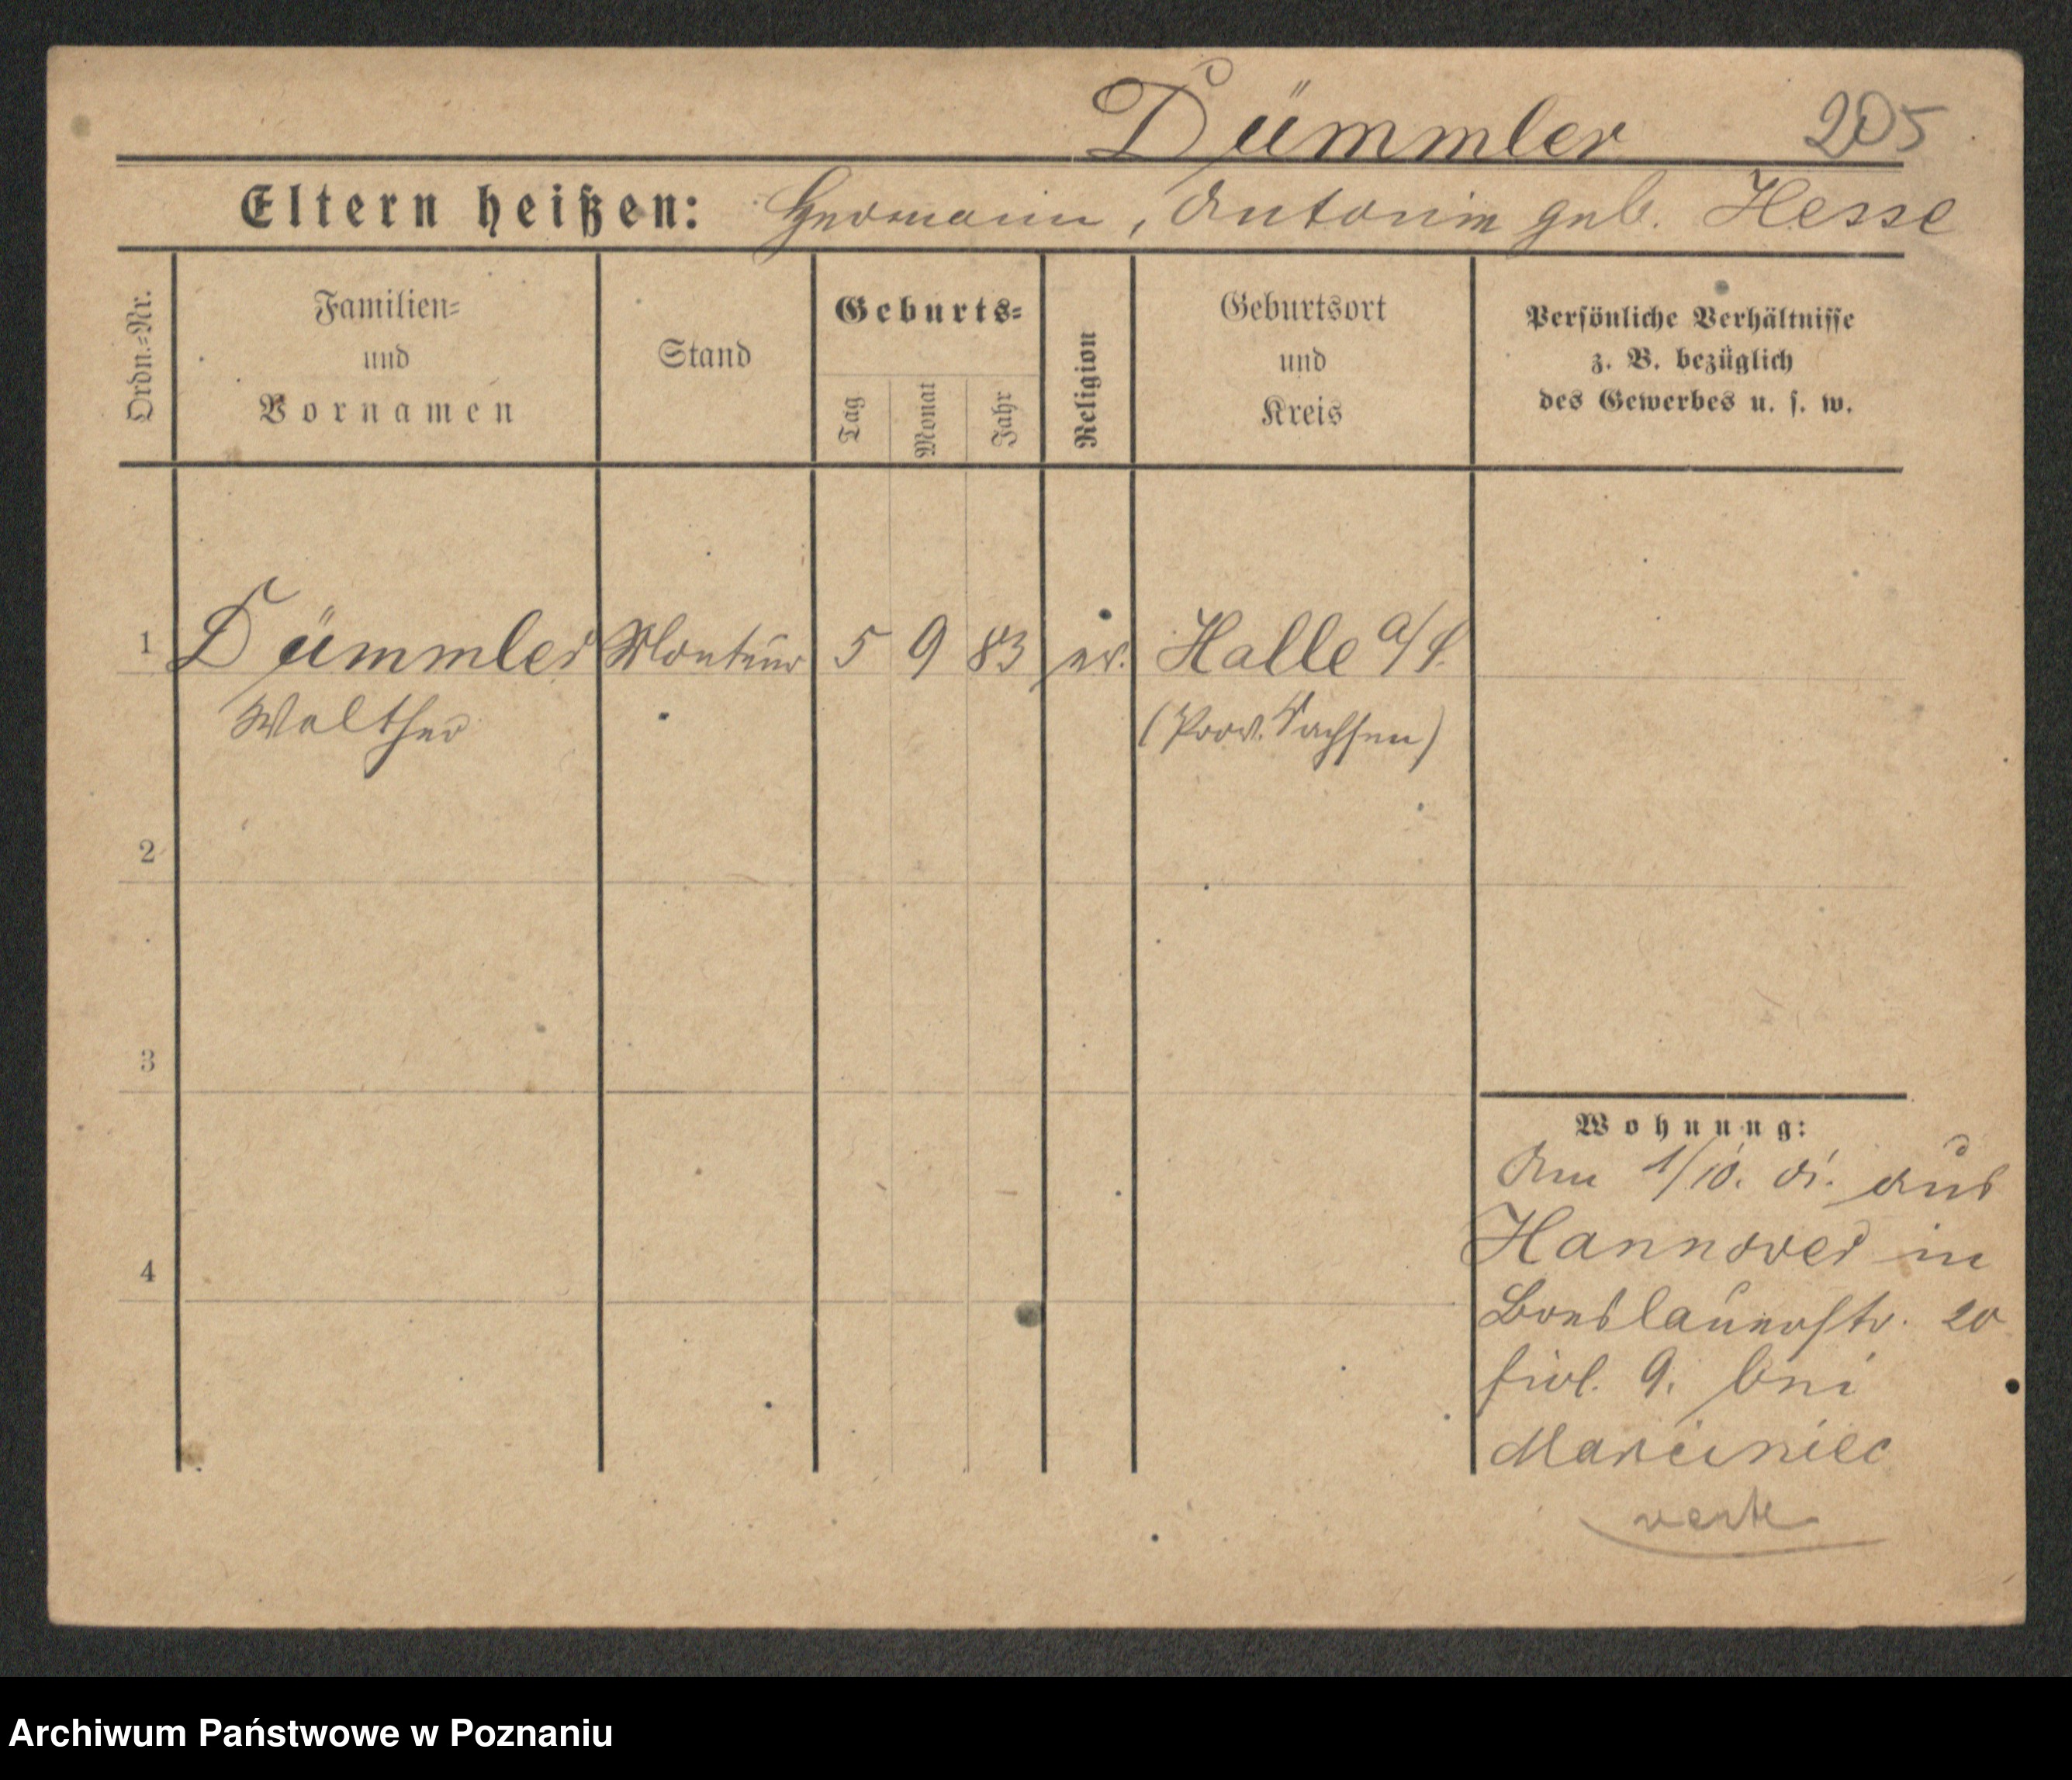 Dümmler 205
Eltern heißen: Hermann, Antonie geb. Hesse
Ordn.-Nr.
Familien-
und
Vornamen
Stand
Geburts-
Tag
Monat
Jahr
Religion
Geburtsort
und
Kreis
Persönliche Verhältnisse
z. B. bezüglich
des Gewerbes u. s. w.
1 Dümmler Monteur 5 9 83 ev. Halle a/S.
Walther (Prov. Sachsen)
2
3
4
Wohnung:
Am 1/10. aus
Hannover in
Breslauerstr. 20
bei
Marciniec
verte
Archiwum Państwowe w Poznaniu